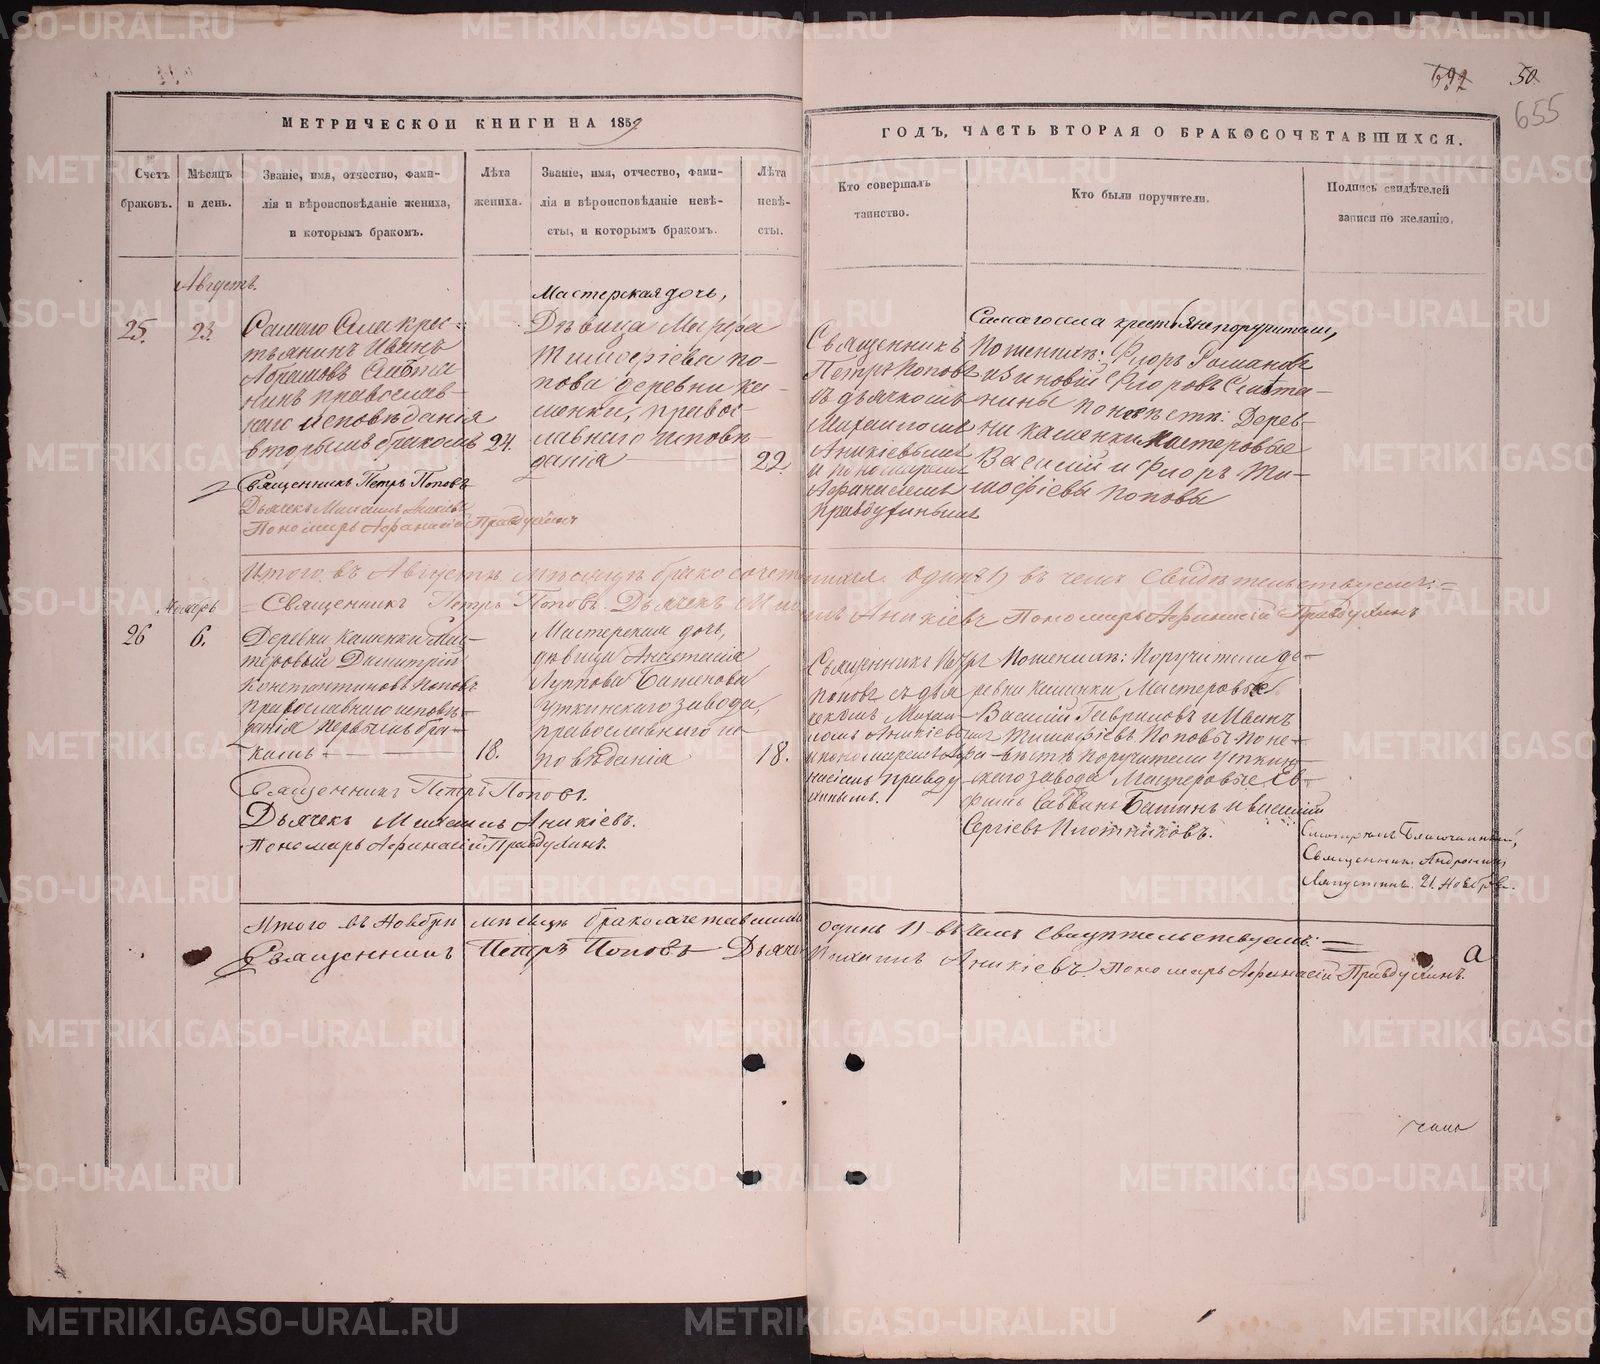 692 50.
655
МЕТРИЧЕСКОЙ КНИГИ НА 1859
ГОДЪ, ЧАСТЬ ВТОРАЯ О БРАКОСОЧЕТАВШИХСЯ.
Счетъ
браковъ.
Мѣсяцъ
и день.
Званіе, имя, отчество, фами-
лія и вѣроисповѣданіе жениха,
и которымъ бракомъ.
Лѣта
жениха.
Званіе, имя, отчество, фами-
лія и вѣроисповѣданіе невѣ-
сты, и которымъ бракомъ.
Лѣта
невѣ-
сты.
Кто совершалъ
таинство.
Кто были поручители.
Подпись свидѣтелей
записи по желанію.
Августъ.
25.
23.
Самаго Села кре-
стьянинъ Иванъ
Абрамовъ Смѣта
нинъ православ-
наго исповѣданія
вторымъ бракомъ
24.
Мастерская дочь,
Дѣвица Марфа
Тимофѣева По-
пова деревни Ка-
менки, правос-
лавнаго исповѣ-
данія
22
Священникъ
Петръ Поповъ
съ дьячкомъ
Михаиломъ
Аникіевымъ
и пономаремъ
Афанасіемъ
Правдухинымъ
Самаго села крестьяне поручители,
По женихѣ: Флоръ Романовъ
и Зиновій Флоровъ Смѣта-
нины по невѣстѣ: Дерев-
ни Каменки мастеровые
Василій и Флоръ Ти-
мофѣевы Поповы
Священникъ Петръ Поповъ
Дьячекъ Михаилъ Аникіевъ
Пономарь Афанасій Правдухинъ
Итого въ Августѣ мѣсяцѣ бракосочетавшихся одинъ 1) въ чемъ Свидѣтельствуемъ:=
=Священникъ Петръ Поповъ. Дьячекъ Михаилъ Аникіевъ Пономарь Афанасій Правдухинъ
Ноябрь
26
6.
Деревни Каменки Мас-
теровый Димитрій
Константиновъ Поповъ
православнаго исповѣ-
данія первымъ бра-
комъ
18.
Мастерская дочь,
дѣвица Анастасія
Луппова Батенова
Уткинскаго завода,
православнаго ис-
повѣданія
18.
Священникъ Петръ
Поповъ съ дья
чкомъ Михаи-
ломъ Аникіевымъ
и пономаремъ Афа-
насіемъ Правду
хинымъ.
По женихѣ: Поручители де-
ревни Каменки Мастеровые
Василій Гавриловъ и Иванъ
Тимофѣевъ Поповы по не-
вѣстѣ поручители Уткин-
скаго завода Мастеровые
Саввинъ Батинъ и Василій
Сергіевъ Плотниковъ.
Священникъ Петръ Поповъ.
Дьячекъ Михаилъ Аникіевъ.
Пономарь Афанасій Правдухинъ.
Смотрѣлъ Благочинный,
Священникъ Андроникъ
Ляпустинъ. 21. Ноября.
Итого въ Ноябрѣ мѣсяцѣ бракосочетавшихся одинъ 1) въ чемъ Свидѣтельствуемъ:=
Священникъ Петръ Поповъ Дьячекъ Михаилъ Аникіевъ. Пономарь Афанасій Правдухинъ.
METRIKI.GASO-URAL.RU